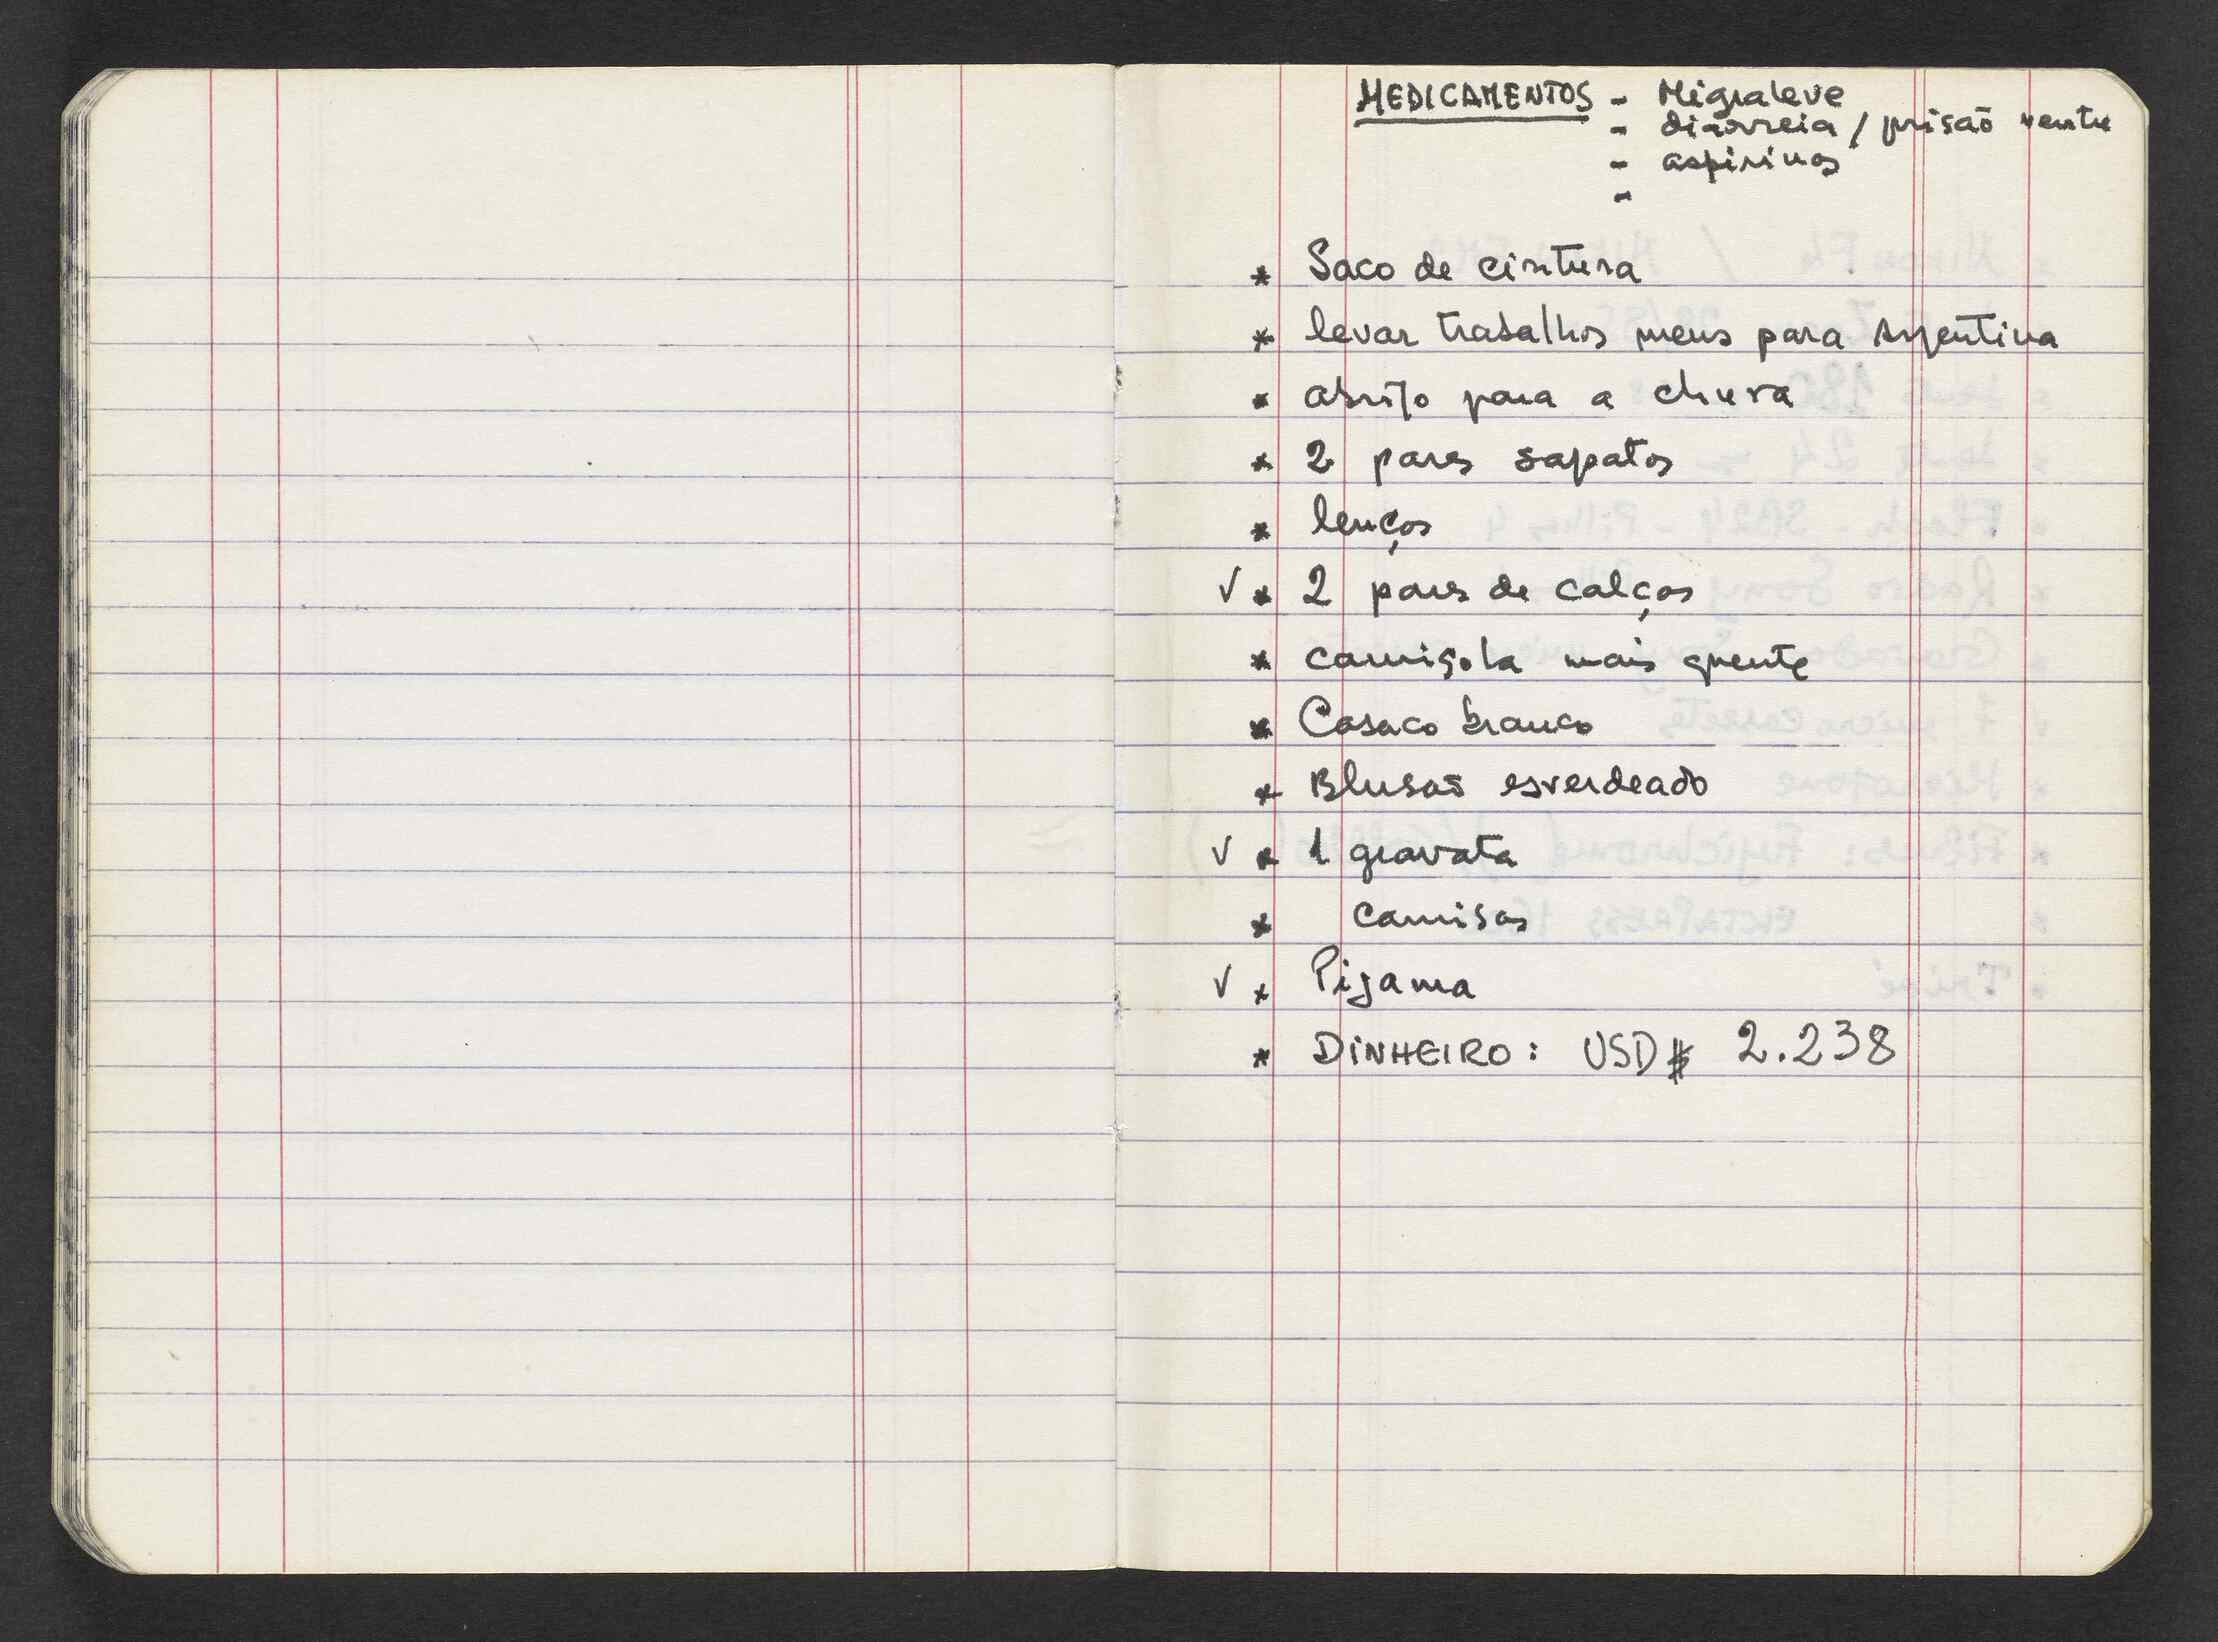 MEDICAMENTOS - Migraleve
- diarreia / prisão ventre
- aspirinas
-
* Saco de cintura
* levar trabalhos meus para Argentina
* abrigo para a chuva
* 2 pares sapatos
* lenços
√ * 2 pares de calças
* camisola mais quente
* Casaco branco
* Blusão esverdeado
√ * 1 gravata
* camisas
√ * Pijama
* DINHEIRO: USD$ 2.238